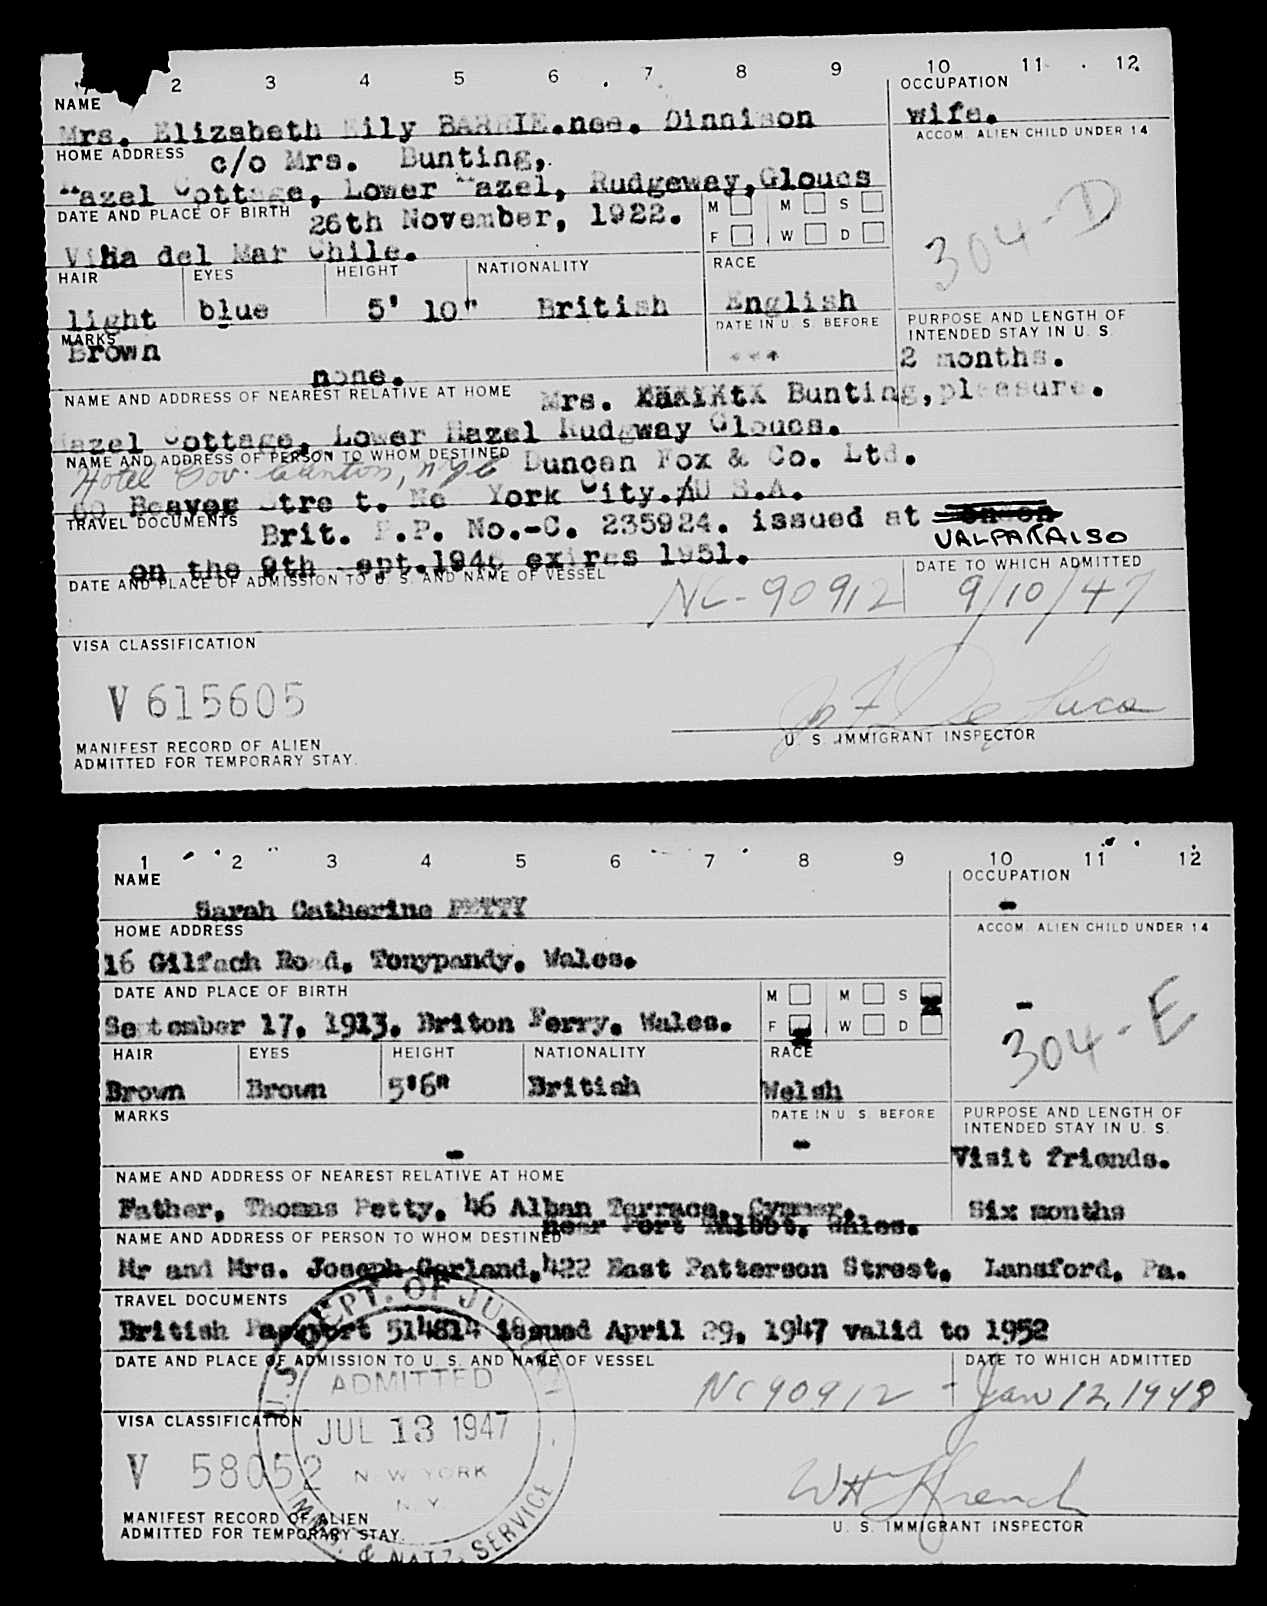 2 3 4 5 6 7 8 9 10 11 12
NAME
OCCUPATION
Mrs. Elizabeth Eily BARRIE.nee. Dinnison
wife.
HOME ADDRESS c/o Mrs. Bunting,
ACCOM. ALIEN CHILD UNDER 14
Hazel Cottage, Lower Hazel, Rudgeway,Gloucs
DATE AND PLACE OF BIRTH 26th November, 1922.
M M S
F W D
304-D
Viña del Mar Chile.
HAIR EYES HEIGHT NATIONALITY RACE
light blue 5' 10" British English
MARKS
Brown
DATE IN U. S. BEFORE
PURPOSE AND LENGTH OF
INTENDED STAY IN U. S.
2 months.
none.
NAME AND ADDRESS OF NEAREST RELATIVE AT HOME Mrs. Bunting, pleasure.
Hazel Cottage, Lower Hazel Rudgway Gloucs.
NAME AND ADDRESS OF PERSON TO WHOM DESTINED Duncan Fox & Co. Ltd.
Hotel Gov. Clinton, NYC
60 Beaver Street. New York City. U S.A.
TRAVEL DOCUMENTS Brit. P.P. No.-C. 235924. issued at London
VALPARAISO
on the 9th Sept.1946 expires 1951.
DATE AND PLACE OF ADMISSION TO U. S. AND NAME OF VESSEL
DATE TO WHICH ADMITTED
NC-90912 9/10/47
VISA CLASSIFICATION
V 615605
Jo F De Luca
MANIFEST RECORD OF ALIEN
ADMITTED FOR TEMPORARY STAY.
U. S. IMMIGRANT INSPECTOR
1 2 3 4 5 6 7 8 9 10 11 12
NAME
OCCUPATION
Sarah Catherine PETTY
-
HOME ADDRESS
ACCOM. ALIEN CHILD UNDER 14
16 Gilfach Road, Tonypandy, Wales.
DATE AND PLACE OF BIRTH
M M S
F W D
-
September 17, 1913. Briton Ferry, Wales.
304-E
HAIR EYES HEIGHT NATIONALITY RACE
Brown Brown 5'6" British Welsh
MARKS
DATE IN U. S. BEFORE
PURPOSE AND LENGTH OF
INTENDED STAY IN U. S.
- -
Visit friends.
NAME AND ADDRESS OF NEAREST RELATIVE AT HOME
Father, Thomas Petty, 46 Alban Terrace, Cymmer,
Six months
near Port Talbot, Wales.
NAME AND ADDRESS OF PERSON TO WHOM DESTINED
Mr and Mrs. Joseph Garland, 422 East Patterson Street, Lansford, Pa.
TRAVEL DOCUMENTS
British Passport 514814 issued April 29, 1947 valid to 1952
DATE AND PLACE OF ADMISSION TO U. S. AND NAME OF VESSEL
DATE TO WHICH ADMITTED
NC90912 - Jan 12, 1948
U.S. DEPT. OF JUSTICE
ADMITTED
JUL 13 1947
NEW YORK
N. Y.
IMM. & NATZ. SERVICE
VISA CLASSIFICATION
V 58052
WH French
MANIFEST RECORD OF ALIEN
ADMITTED FOR TEMPORARY STAY.
U. S. IMMIGRANT INSPECTOR